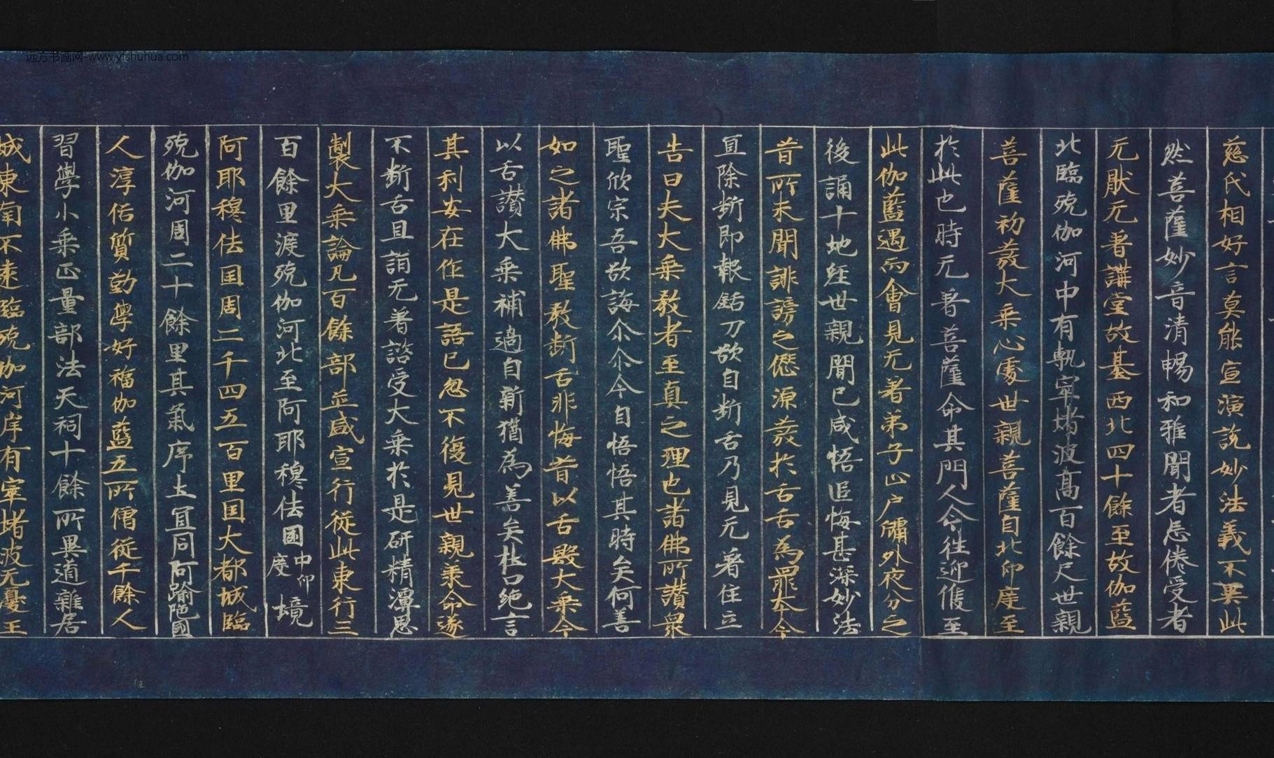 慈氏相好言莫能宣演說妙法義不異此
然菩薩妙音清暢和雅聞者忘倦受者
无猒无著講堂故基西北四十餘至故伽藍
北臨殑伽河中有軌窣堵波高百餘尺世親
菩薩初發大乘心處世親菩薩自北印度至
於此也時无著菩薩命其門人令往迎候至
此伽藍遇而會見无著弟子止户牖外夜分之
後誦十地經世親聞已感悟追悔甚深妙法
昔所未聞誹謗之愆源發於舌舌為罪本今
宜除斷即報銛刀欲自斷舌乃見无著住立
告曰夫大乘教者至真之理也諸佛所讚衆
聖攸宗吾欲誨尒尒今自悟悟其時矣何善
如之諸佛聖教斷舌非悔昔以舌毀大乘今
以舌讚大乘補過自新猶為善矣杜口絶言
其利安在作是語已忽不復見世親乘命遂
不斷舌且詣无著諮受大乘於是研精潭思
製大乘論凡百餘部並盛宣行從此東行三
百餘里渡殑伽河北至阿耶穆佉國中印度境
阿耶穆佉国周二千四五百里国大都城臨
殑伽河周二十餘里其氣序土宜同阿踰陁國
人淳俗質勤學好福伽藍五所僧徒千餘人
習學小乘正量部法天祠十餘所異道雜居
城東南不遠臨殑伽河岸有窣堵波无憂王
远方书画网-www.yfshuhua.com